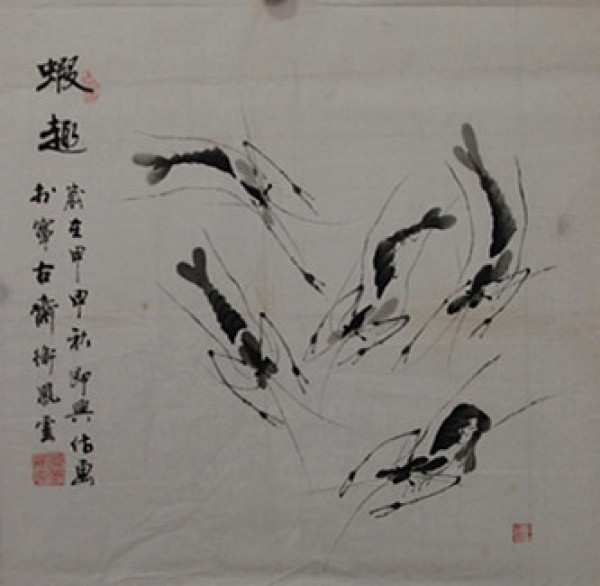 蝦趣
歲在甲申秋即興作畫
於寧古齋衛風雲